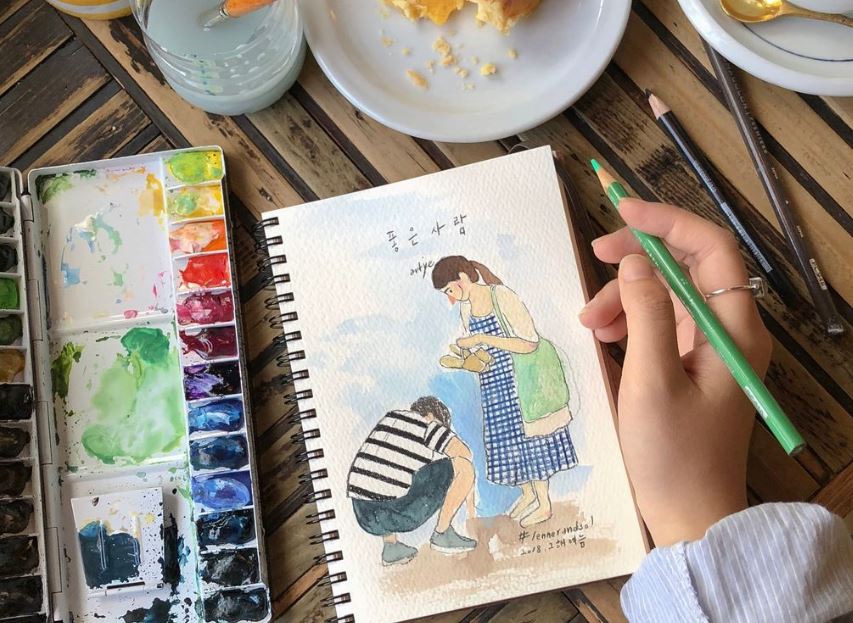 좋은 사람
artye
#lennerandsol
2018. 그해 여름